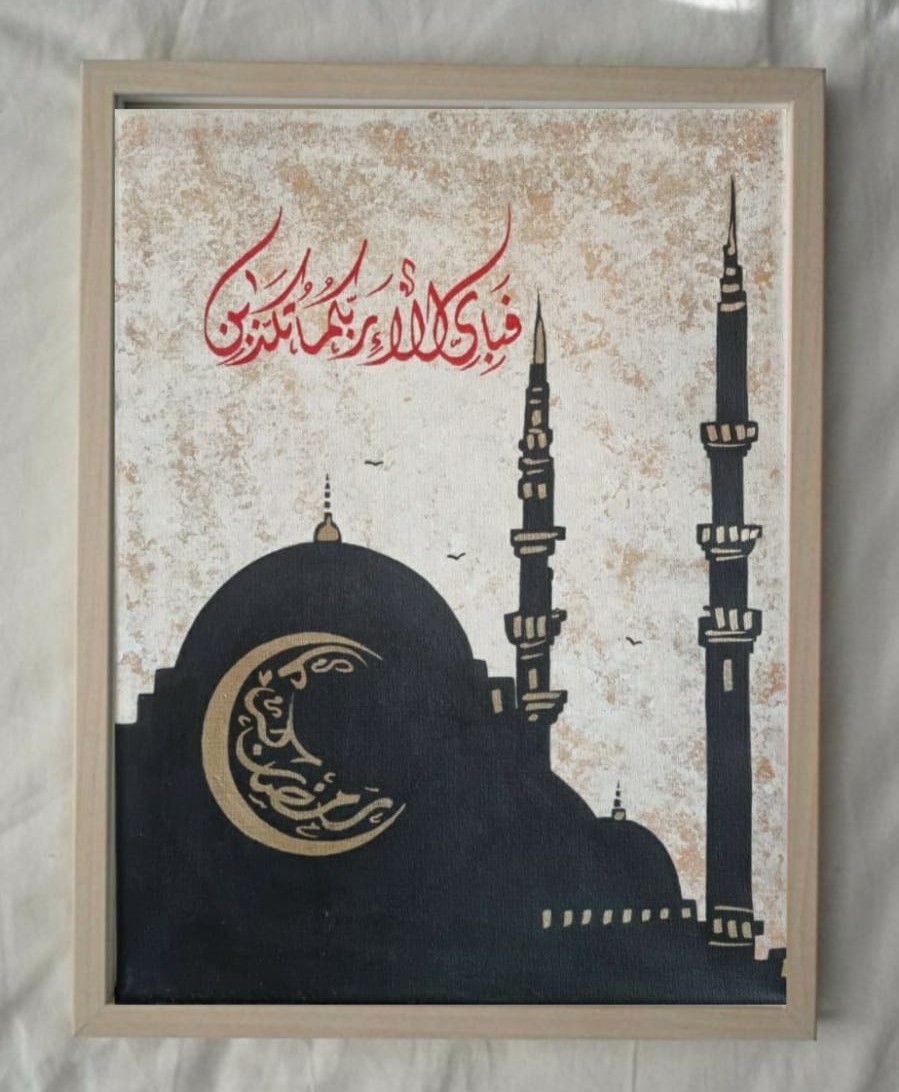 فَبِأَىِّ ءَالَآءِ رَبِّكُمَا تُكَذِّبَانِ
رمضان كريم